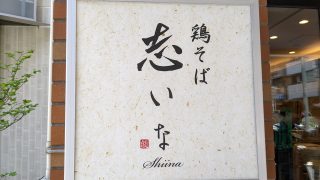 鶏そば
志いな
Shiina